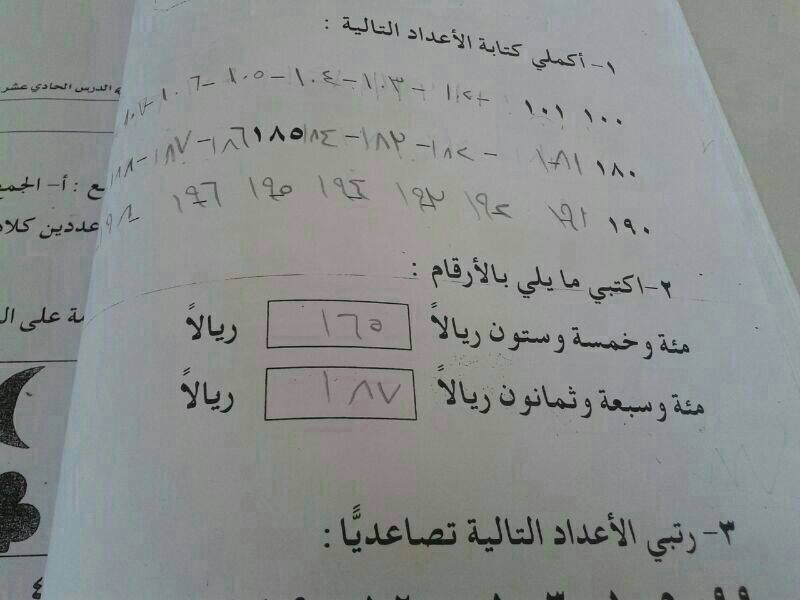 ١- أكملي كتابة الأعداد التالية :
١٠٠ ١٠١ ١٠٢ - ١٠٣ - ١٠٤ - ١٠٥ - ١٠٦ - ١٠٧
١٨٠ ١٨١ - ١٨٢ - ١٨٣ - ١٨٤ ١٨٥ ١٨٦ - ١٨٧ - ١٨٨
١٩٠ ١٩١ ١٩٢ ١٩٣ ١٩٤ ١٩٥ ١٩٦
٢- اكتبي ما يلي بالأرقام :
مئة وخمسة وستون ريالاً ١٦٥ ريالاً
مئة وسبعة وثمانون ريالاً ١٨٧ ريالاً
٣- رتبي الأعداد التالية تصاعديًّا :
الدرس الحادي عشر
ع : أ- الجمع
عددين كلا
ة على ال
٤